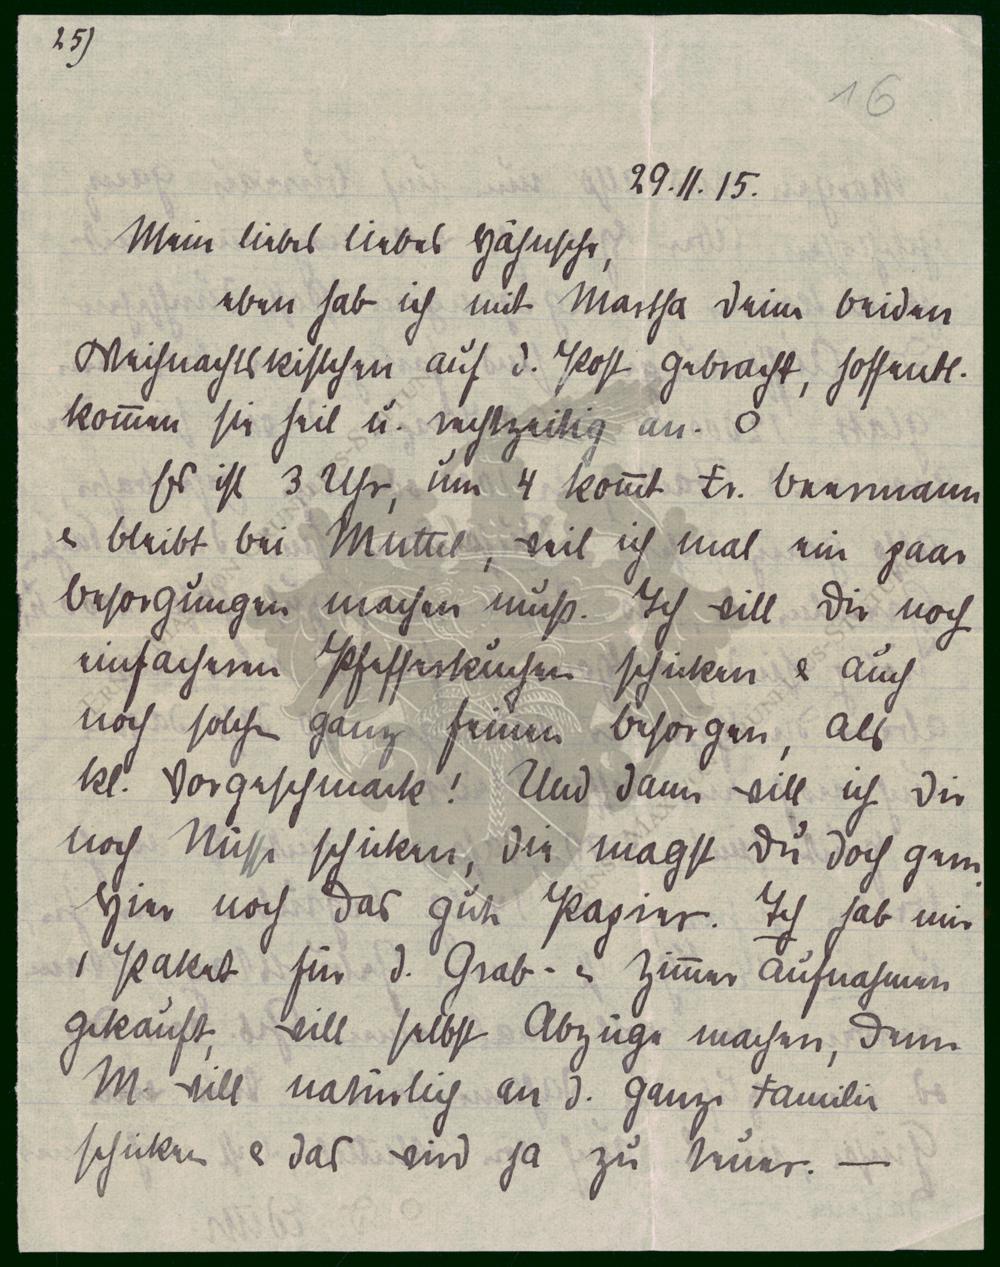 25)
16
29.11.15.
Mein liebes liebes Hähnsche,
eben hab ich mit Martha deine beiden
Weihnachtskistchen auf d. Post gebracht, hoffentl.
kom̄en sie heil u. rechtzeitig an. O
Es ist 3 Uhr, um 4 kom̄t Fr. Beermann
& bleibt bei Muttel, weil ich mal ein paar
Besorgungen machen muß. Ich will Dir noch
einfacheren Pfefferkuchen schicken & auch
noch solche ganz feinen besorgen, als
kl. Vorgeschmack! Und dann will ich Dir
noch Nüsse schicken, die magst Du doch gern.
Hier noch das gute Papier. Ich hab mir
1 Paket für d. Grab- & Zim̄er Aufnahmen
gekauft, will selbst Abzüge machen, denn
M. will natürlich an d. ganze Familie
schicken & das wird ja zu teuer. —